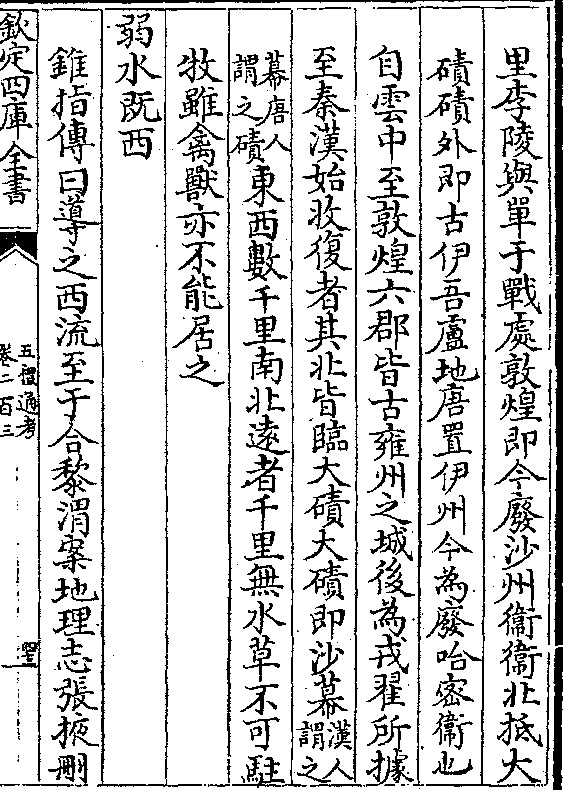 里李陵與單于戰處敦煌即今廢沙州衞衞北抵大
磧磧外即古伊吾盧地唐置伊州今為廢哈密衞也
自雲中至敦煌六郡皆古雍州之城後為戎翟所據
至秦漢始收復者其北皆臨大磧大磧即沙幕漢人謂之
幕唐人謂之磧東西數千里南北遠者千里無水草不可駐
牧雖禽獸亦不能居之
弱水既西
錐指傳曰導之西流至于合黎渭案地理志張掖刪
欽定四庫全書
五禮通考
卷二百三